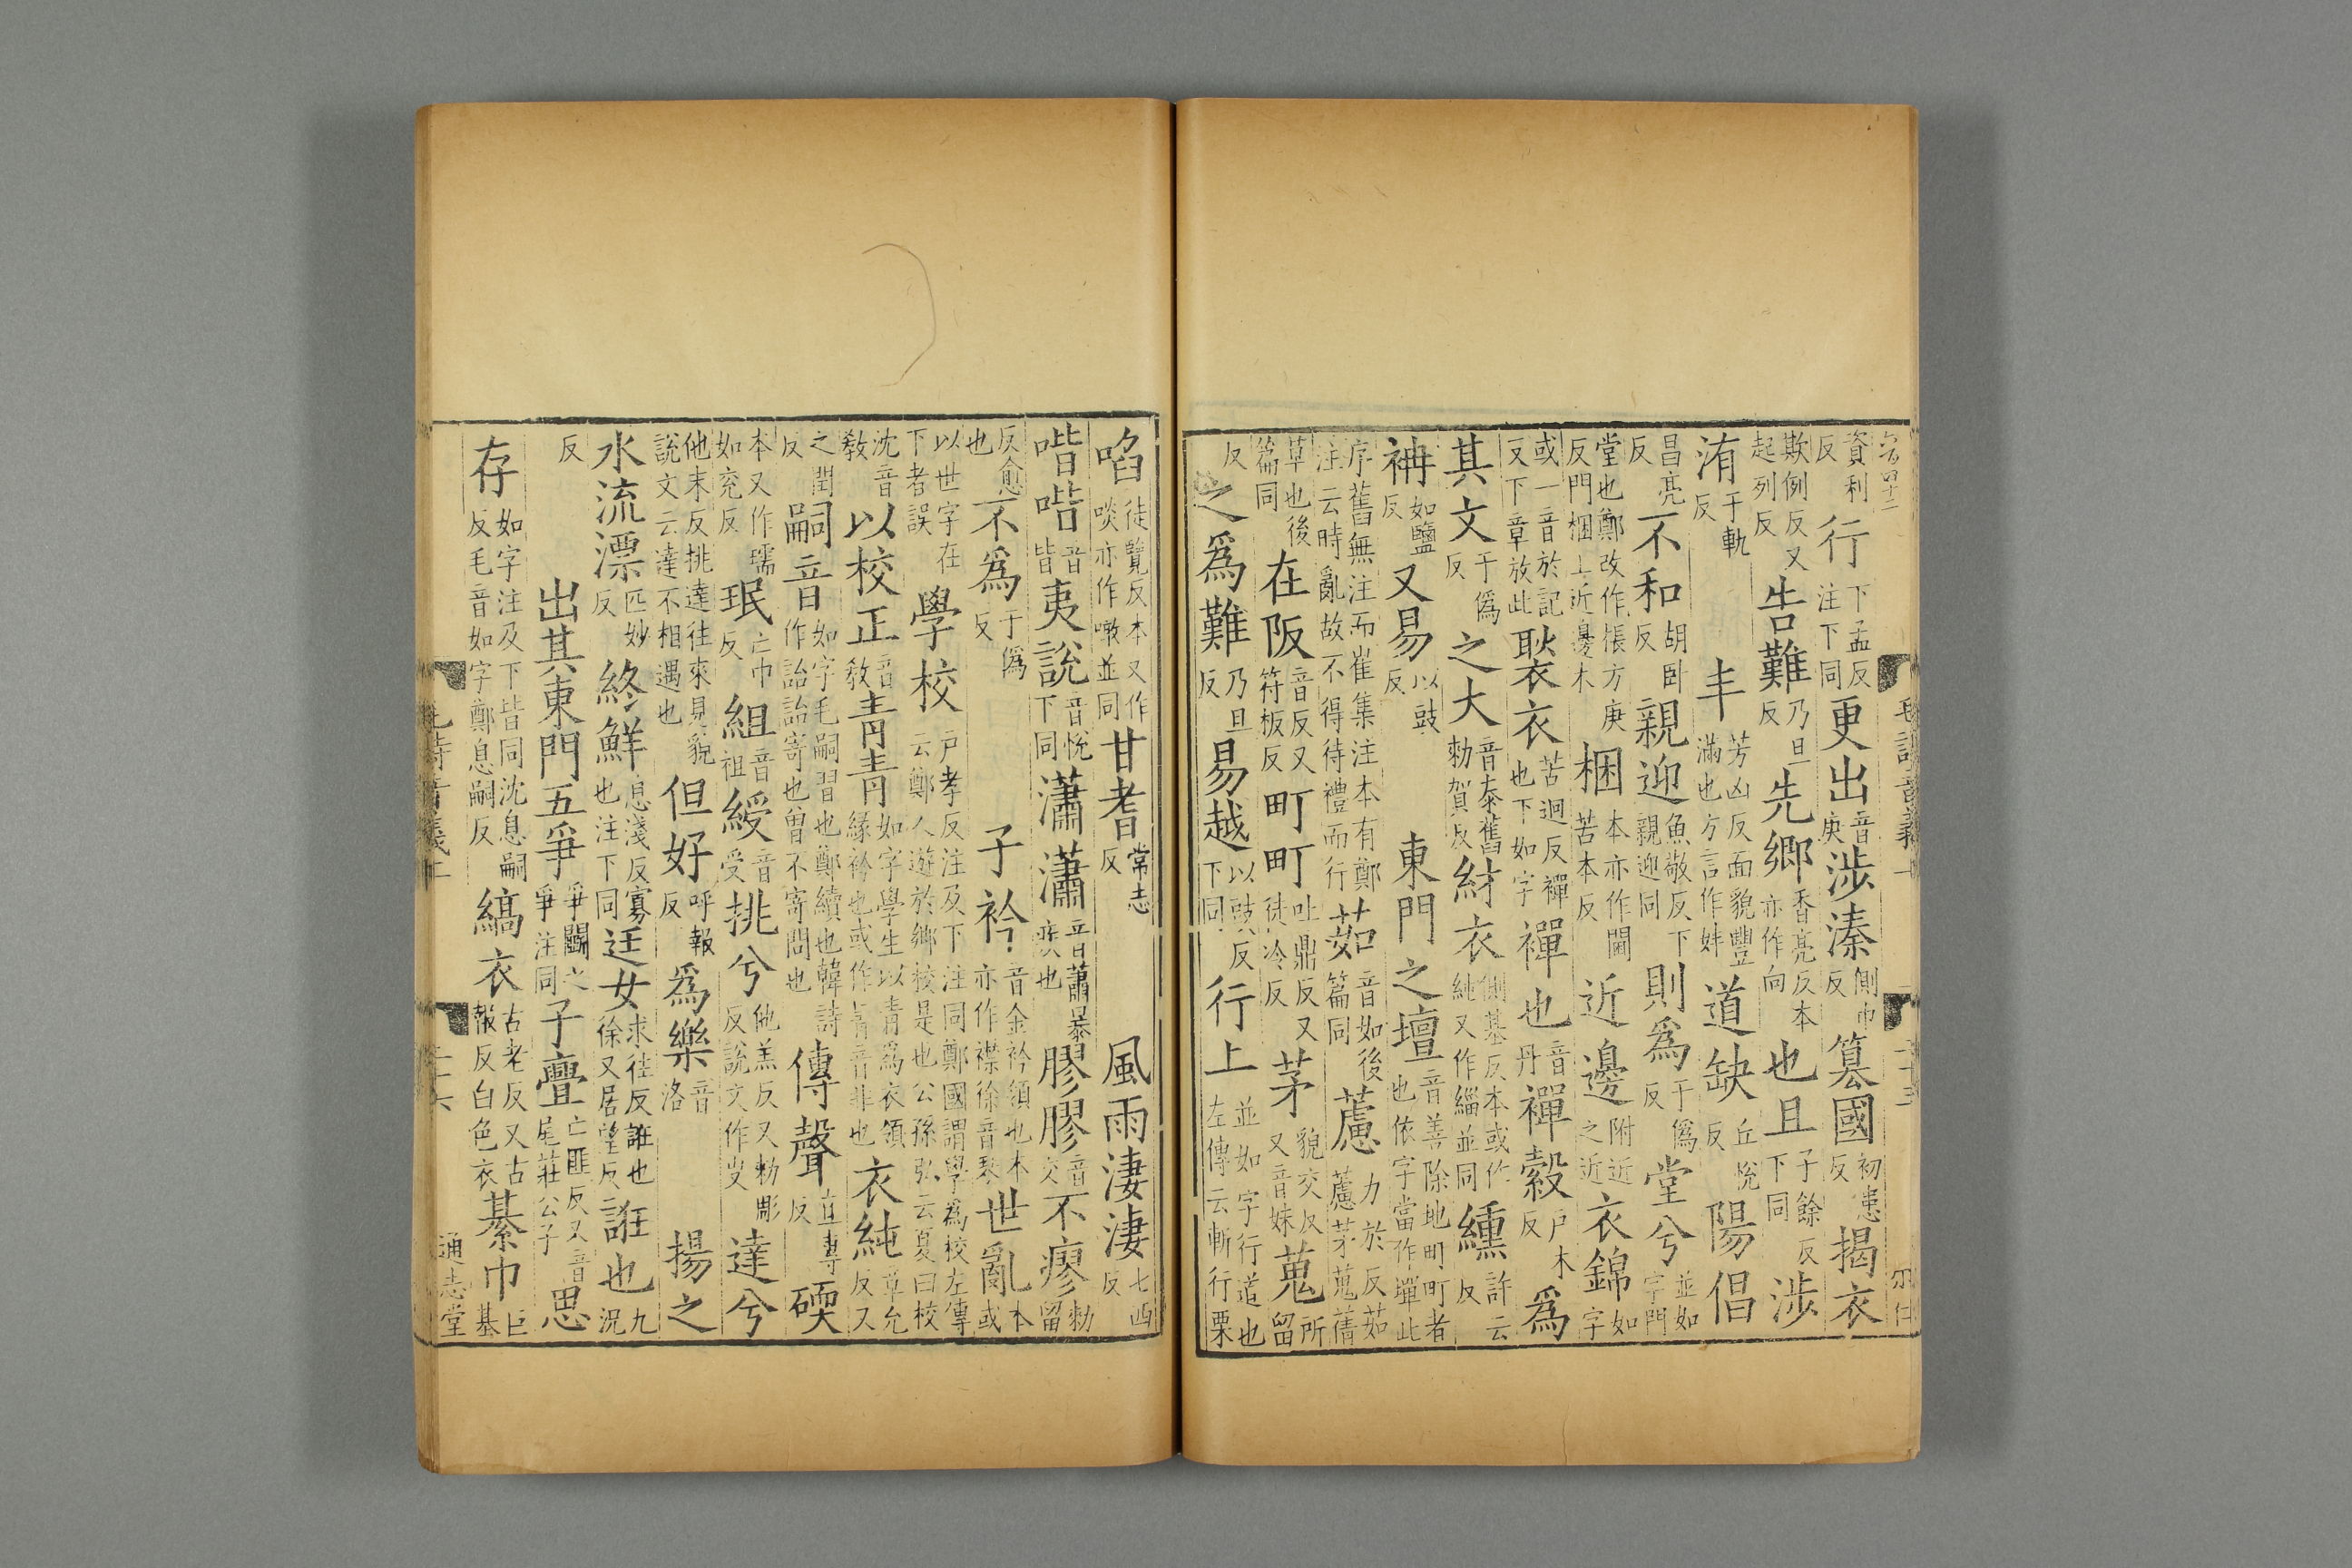 資利反行下孟反注下同更出音庚涉溱側巾反篡國初患反揭衣
欺例反又起列反告難乃旦反先鄉香亮反本亦作向也且子餘反下同涉
洧于軌反丰芳凶反面貌豐滿也方言作妦道缺丘悅反陽倡
昌亮反不和胡卧反親迎魚敬反下親迎同則為于偽反堂兮並如字門
堂也鄭改作棖方庚反門梱上近邊木梱本亦作閫苦本反近邊附近之近衣錦如字
或一音於記反下章放此褧衣苦迥反襌也下如字襌也音丹襌縠戶木反為
其文于偽反之大音泰舊勑賀反紂衣側基反本或作純又作緇並同纁許云反
袡如鹽反又易以豉反東門之壇音善除地町町者也依字當作墠此
序舊無注而崔集注本有鄭注云時亂故不得待禮而行茹音如後篇同藘力於反茹藘茅蒐蒨
草也後篇同在阪音反又符板反町町吐鼎反又徒冷反茅貌交反又音妹蒐所留
反之為難乃旦反易越以豉反下同行上並如字行道也左傳云斬行栗
啗徒覽反本又作啖亦作噉並同甘耆常志反風雨淒淒七西反
喈喈音皆夷說音悅下同瀟瀟音蕭暴疾也膠膠音交不瘳勑留
反愈也不為于偽反子衿音金衿領也本亦作襟徐音琴世亂本或
以世字在下者誤學校戶孝反注及下注同鄭國謂學為校左傳云鄭人遊於鄉校是也公孫弘云夏曰校
沈音教以校正音教青青如字學生以青為衣領緣衿也或作菁音非也衣純章允反又
之閏反嗣音如字毛嗣習也鄭續也韓詩作詒詒寄也曾不寄問也傳聲直專反碝
本又作瓀如兖反珉亡巾反組音祖綬音受挑兮他羔反又勑彫反說文作㞖達兮
他末反挑達往來見貌說文云達不相遇也但好呼報反為樂音洛揚之
水流漂匹妙反終鮮息淺反寡也注下同迋女求往反誑也徐又居望反誑也九況
反出其東門五爭爭鬭之爭注同子亹亡匪反又音尾莊公子思
存如字注及下皆同沈息嗣反毛音如字鄭息嗣反縞衣古老反又古報反白色衣綦巾巨基
通志堂